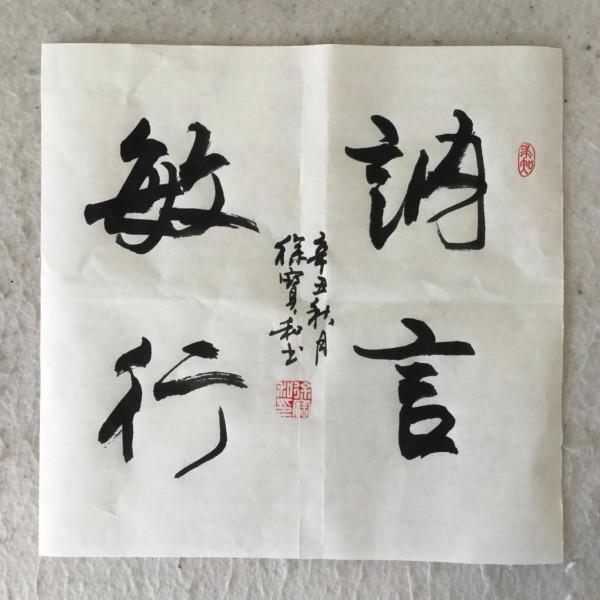 訥言
敏行
辛丑秋月
徐寶和书